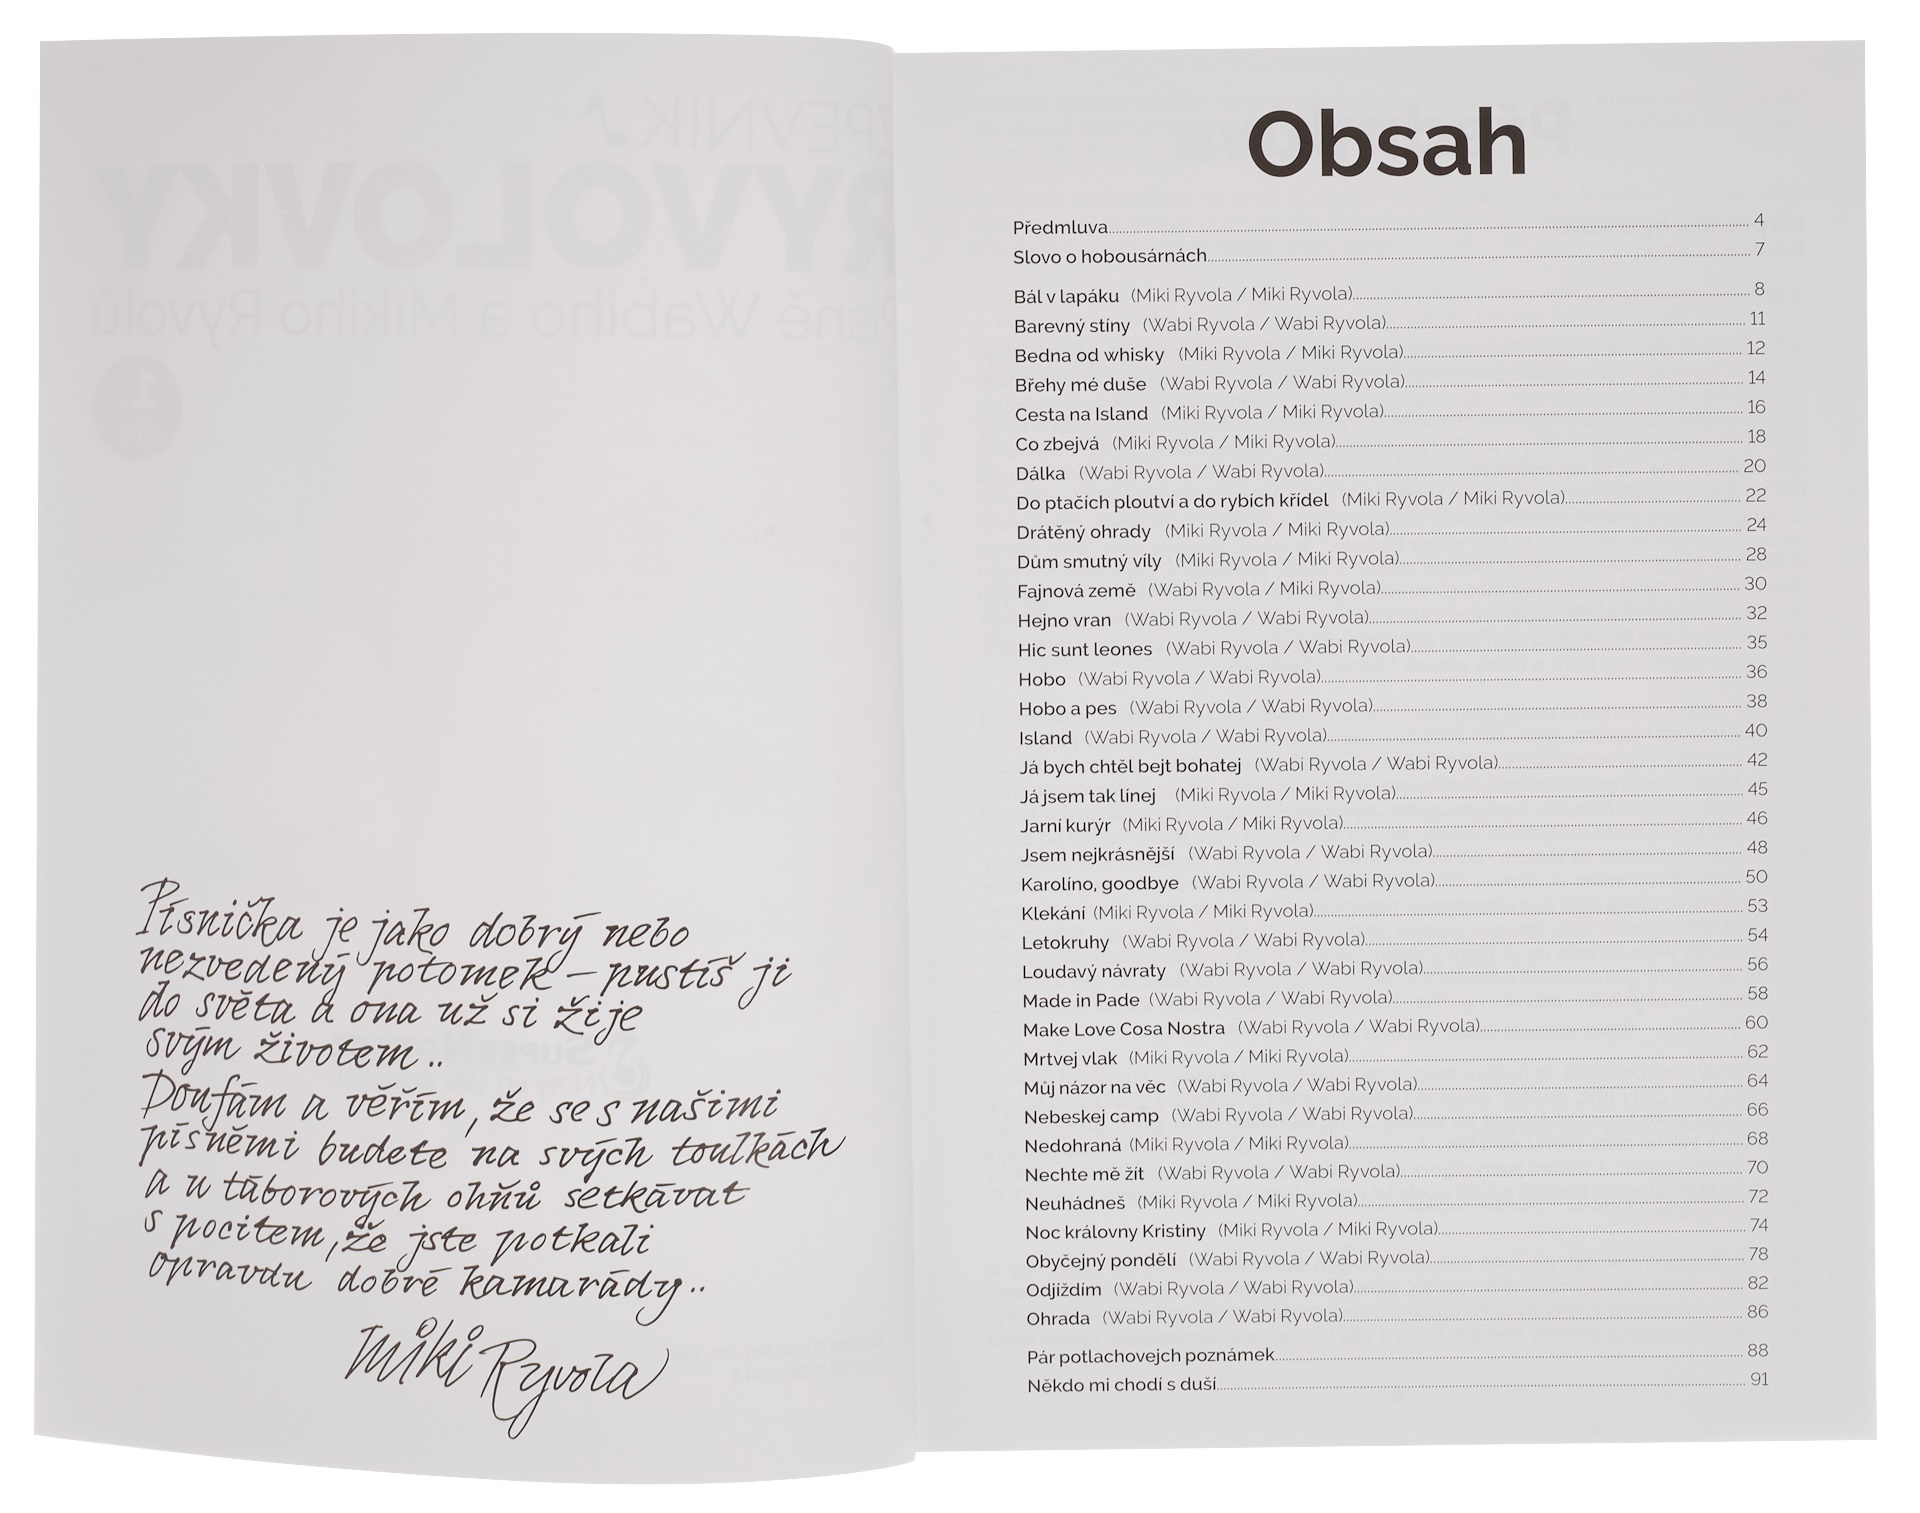 Písnička je jako dobrý nebo
nezvedený potomek – pustíš ji
do světa a ona už si žije
svým životem..
Doufám a věřím, že se s našimi
písněmi budete na svých toulkách
a u táborových ohňů setkávat
s pocitem, že jste potkali
opravdu dobré kamarády..
Miki Ryvola
Obsah
Předmluva 4
Slovo o hobousárnách 7
Bál v lapáku (Miki Ryvola / Miki Ryvola) 8
Barevný stíny (Wabi Ryvola / Wabi Ryvola) 11
Bedna od whisky (Miki Ryvola / Miki Ryvola) 12
Břehy mé duše (Wabi Ryvola / Wabi Ryvola) 14
Cesta na Island (Miki Ryvola / Miki Ryvola) 16
Co zbejvá (Miki Ryvola / Miki Ryvola) 18
Dálka (Wabi Ryvola / Wabi Ryvola) 20
Do ptačích ploutví a do rybích křídel (Miki Ryvola / Miki Ryvola) 22
Drátěný ohrady (Miki Ryvola / Miki Ryvola) 24
Dům smutný víly (Miki Ryvola / Miki Ryvola) 28
Fajnová země (Wabi Ryvola / Miki Ryvola) 30
Hejno vran (Wabi Ryvola / Wabi Ryvola) 32
Hic sunt leones (Wabi Ryvola / Wabi Ryvola) 35
Hobo (Wabi Ryvola / Wabi Ryvola) 36
Hobo a pes (Wabi Ryvola / Wabi Ryvola) 38
Island (Wabi Ryvola / Wabi Ryvola) 40
Já bych chtěl bejt bohatej (Wabi Ryvola / Wabi Ryvola) 42
Já jsem tak línej (Miki Ryvola / Miki Ryvola) 45
Jarní kurýr (Miki Ryvola / Miki Ryvola) 46
Jsem nejkrásnější (Wabi Ryvola / Wabi Ryvola) 48
Karolíno, goodbye (Wabi Ryvola / Wabi Ryvola) 50
Klekání (Miki Ryvola / Miki Ryvola) 53
Letokruhy (Wabi Ryvola / Wabi Ryvola) 54
Loudavý návraty (Wabi Ryvola / Wabi Ryvola) 56
Made in Pade (Wabi Ryvola / Wabi Ryvola) 58
Make Love Cosa Nostra (Wabi Ryvola / Wabi Ryvola) 60
Mrtvej vlak (Miki Ryvola / Miki Ryvola) 62
Můj názor na věc (Wabi Ryvola / Wabi Ryvola) 64
Nebeskej camp (Wabi Ryvola / Wabi Ryvola) 66
Nedohraná (Miki Ryvola / Miki Ryvola) 68
Nechte mě žít (Wabi Ryvola / Wabi Ryvola) 70
Neuhádneš (Miki Ryvola / Miki Ryvola) 72
Noc královny Kristiny (Miki Ryvola / Miki Ryvola) 74
Obyčejný pondělí (Wabi Ryvola / Wabi Ryvola) 78
Odjíždím (Wabi Ryvola / Wabi Ryvola) 82
Ohrada (Wabi Ryvola / Wabi Ryvola) 86
Pár potlachovejch poznámek 88
Někdo mi chodí s duší 91